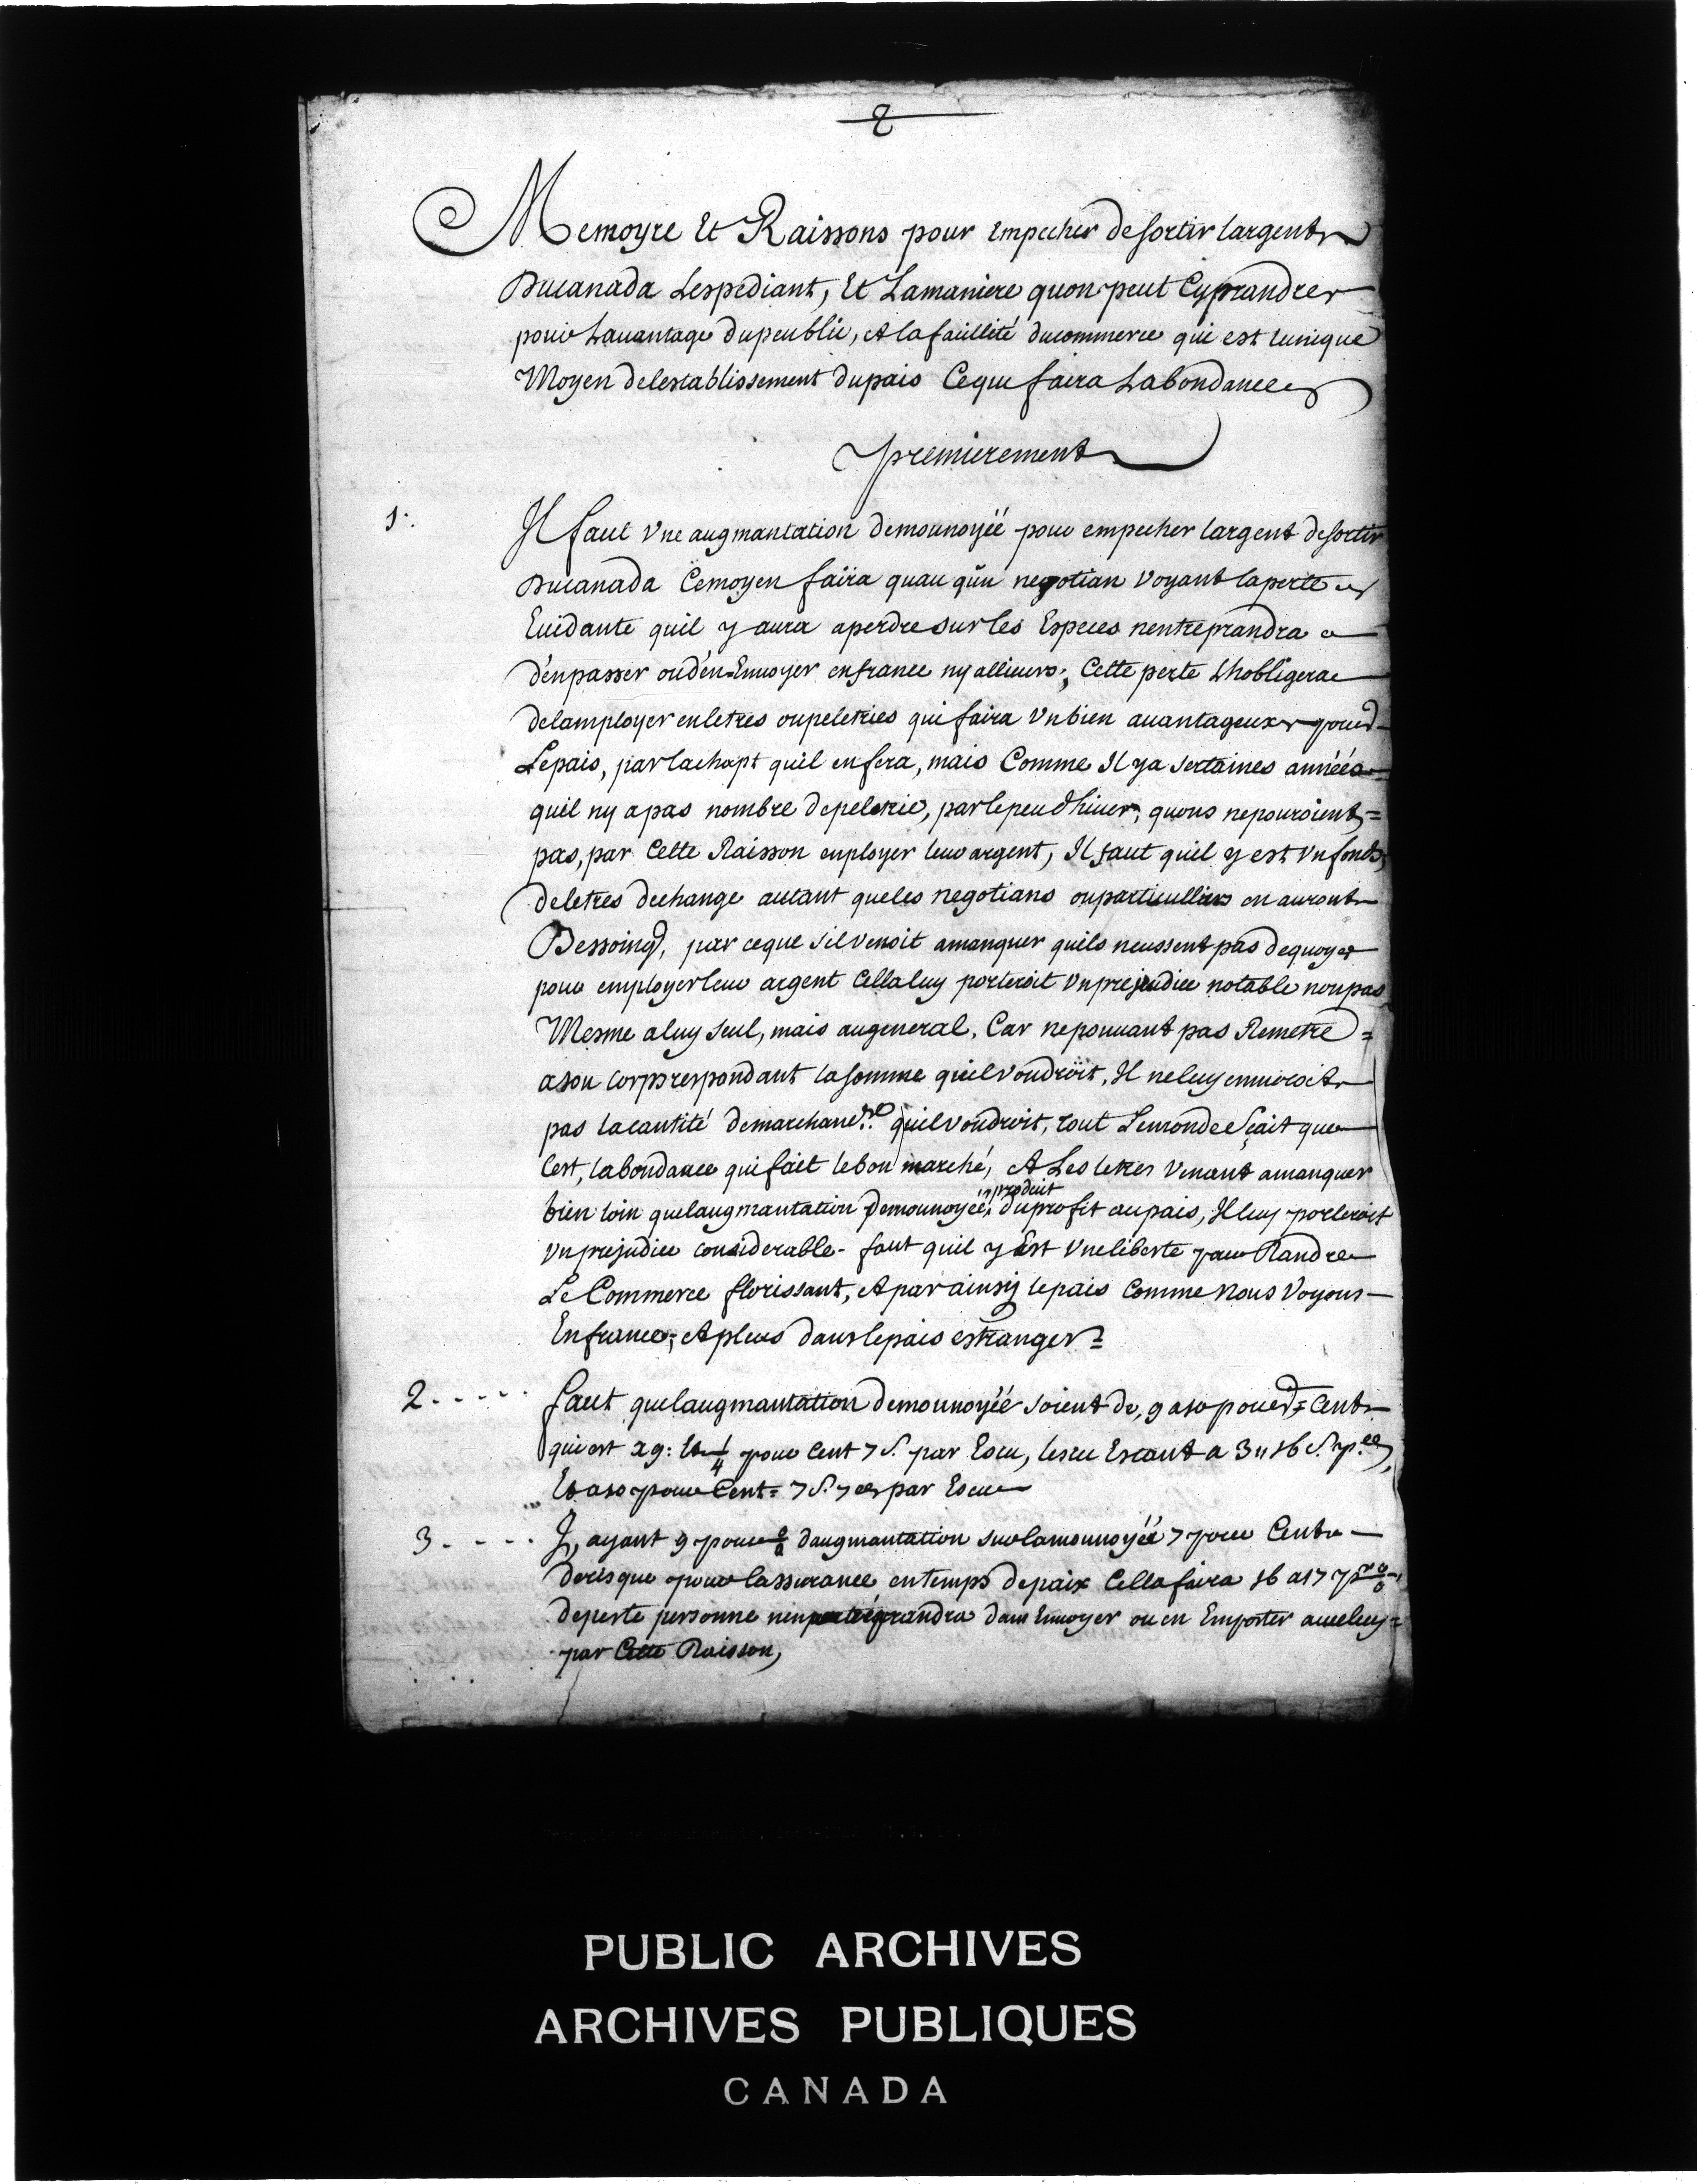 2
Memoyre Et Raissons pour Empecher de sortir largent
Ducanada Lespediant, Et Lamaniere quon peut Cyprandre
pour Lauantage dupeublic, et la faillité ducommerce qui est lunique
Moyen delestablissement dupais Ceque faira Labondance
premierement
1. Il faut Vne augmantation demounoyéé pour empecher largent desortir
Ducanada Cemoyen faira quau qun negotian Voyant laperte
Euidante quil y aura aperdre sur les Especes nentreprandra
d'enpasser oud'en Enuoyer enfrance ny allieurs; Cette perte Lhobligera
delamployer enletres oupeletries qui faira Vn bien auantageux pour
Lepais, par lachapt quil enfera, mais Comme Il ya sertaines annéés
quil ny apas nombre depeletrie, par lepeu dhiuer, quons nepouroient
pas, par Cette Raisson employer leur argent, Il faut quil y est Vn fonds
deletres dechange autant queles negotians ouparticulliers en auront
Bessoing, par ceque sil venoit amanquer quils neussent pas dequoy
pour employer leur argent Cella luy porteroit Vn prejeudice notable nonpas
Mesme aluy seul, mais augeneral. Car nepouuant pas Remetre
ason corpsrespondant la somme quil voudroit, Il neluy enuiroit
pas lacantité demarchandses quil voudroit, tout Lemonde sçait que
Cest, labondance qui fait lebon marché, et Les letres Venant amanquer
bien loin quelaugmantation demounoyéé, produit duprofit aupais, Il luy porteroit
Vn prejudice considerable - faut quil y Est Vneliberte pour Randre
Le Commerce florissant, et par ainsy lepais Comme Nous Voyons
Enfrance; et pleus dans lepais estranger
2 - - - - - faut quelaugmantation demounoyéé soient de, 9 a 10 pour Cent
qui est a 9: Et 1/4 pour Cent 7 s. par Escu, lescu Estant a 3 " 16 s. pce,
Et a 10 pour Cent = 7 s. 7 par Escu
3 - - - - Il, ayant 9 pour o/o daugmantation surlamounoyéé 7 pour Cent
derisque pour lassurance entemps depaix Cella faira 16 a 17 pr o/o
deperte personne nenprandra dans Enuoyer ou en Emporter aueluy
par Cette Raisson,
PUBLIC ARCHIVES
ARCHIVES PUBLIQUES
CANADA